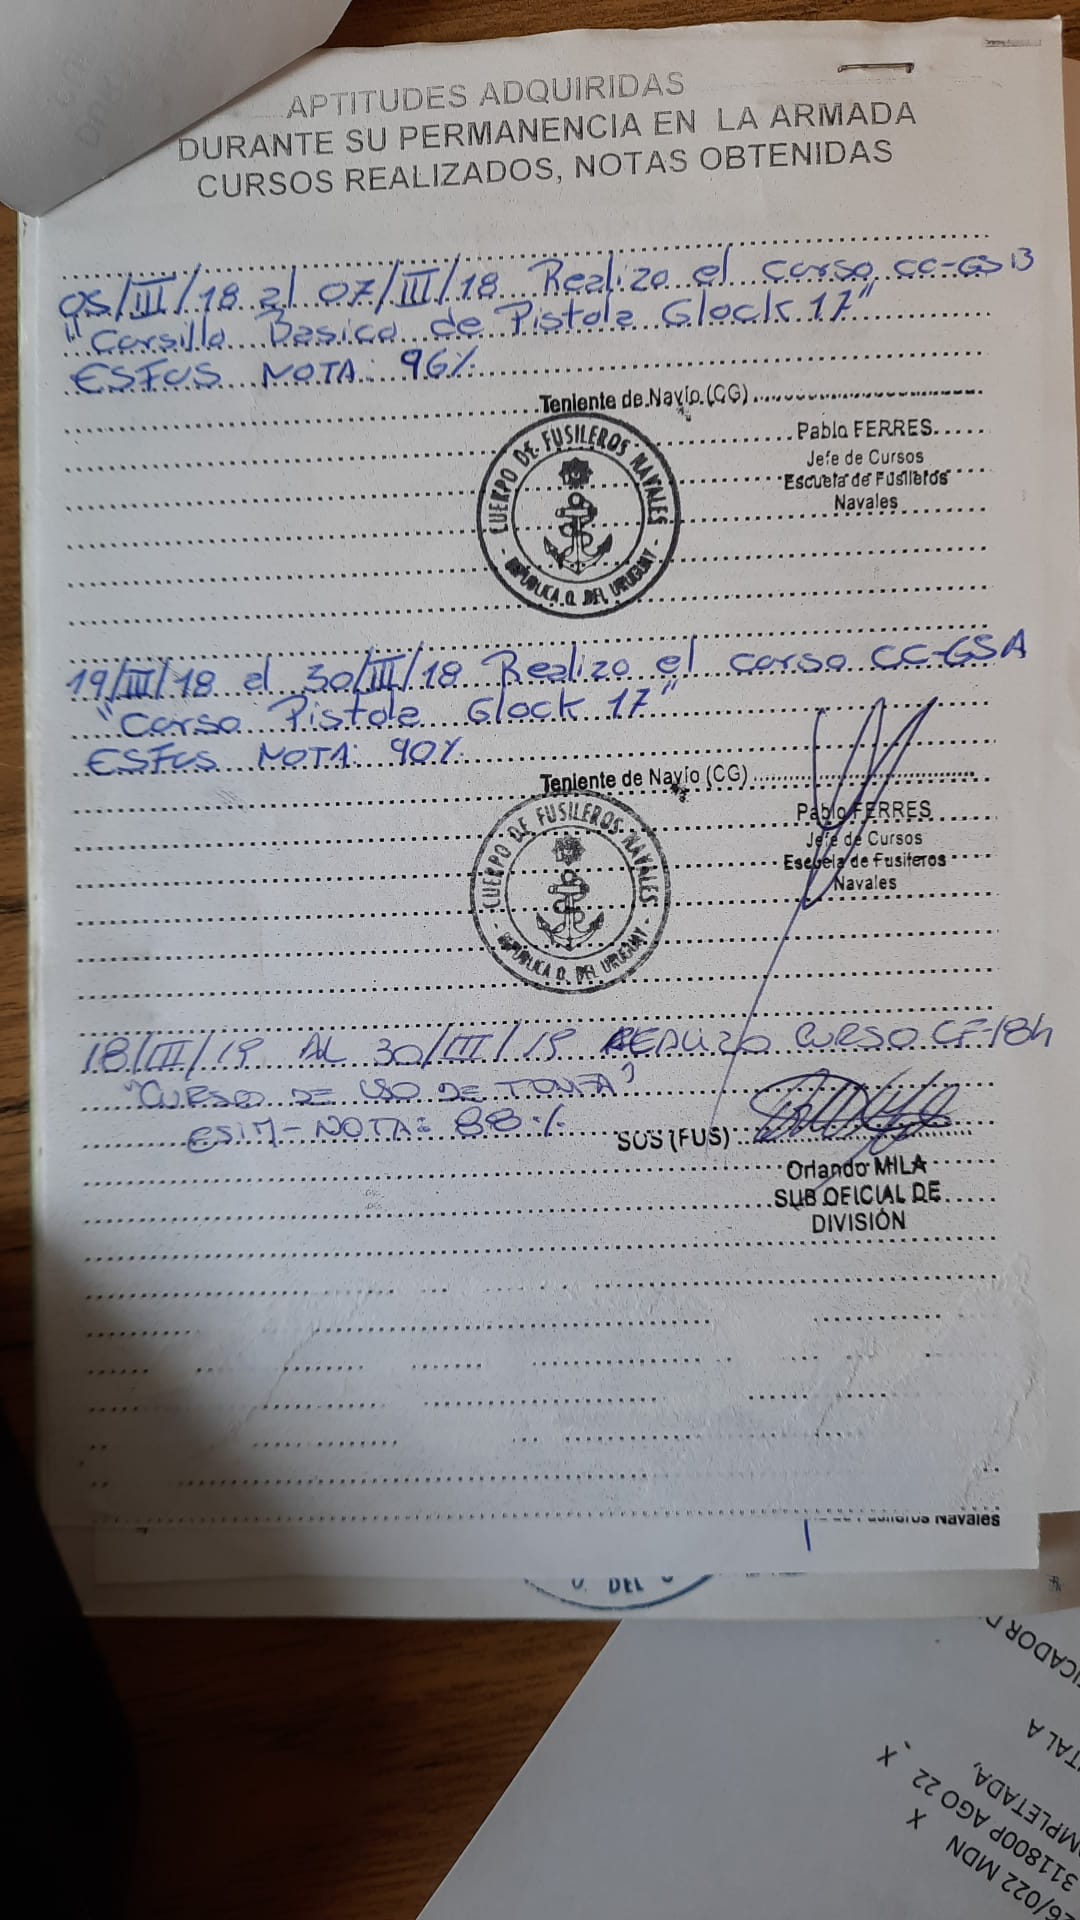 APTITUDES ADQUIRIDAS
DURANTE SU PERMANENCIA EN LA ARMADA
CURSOS REALIZADOS, NOTAS OBTENIDAS
05/III/18 al 07/III/18 Realizo el curso CC-GSB
"Cursillo Basico de Pistola Glock 17"
ESFUS NOTA: 96%
Teniente de Navío (CG)
Pablo FERRES
Jefe de Cursos
Escuela de Fusileros
Navales
CUERPO DE FUSILEROS NAVALES
REPÚBLICA O. DEL URUGUAY
19/III/18 al 30/III/18 Realizo el curso CC-GSA
"Curso Pistola Glock 17"
ESFUS NOTA: 90%
Teniente de Navío (CG)
Pablo FERRES
Jefe de Cursos
Escuela de Fusileros
Navales
CUERPO DE FUSILEROS NAVALES
REPÚBLICA O. DEL URUGUAY
18/III/19 AL 30/III/19 REALIZO CURSO CF-18h
"CURSO DE USO DE TONFA"
ESIM-NOTA: 88%
SOS (FUS)
Orlando MILA
SUB OFICIAL DE
DIVISIÓN
Fusileros Navales
O. DEL
X
311800P AGO 22 X
26/022 MDN